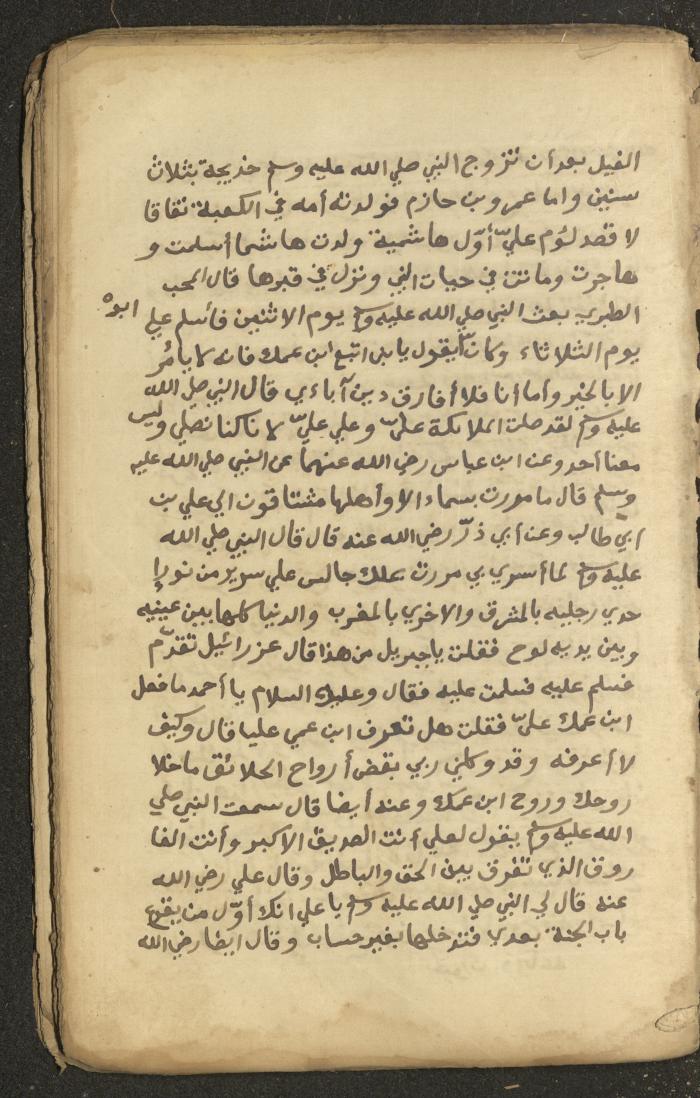 الفيل بعد أن تزوج النبي صلي الله عليه وسلم خديجة بثلاث
سنين واما عمرو بن حازم فولدته أمه في الكعبة تفاقا
لا قصد لؤم عليّ أوّل هاشمية ولدت هاشما أسلمت و
هاجرت وماتت في حيات النبي ونزل في قبرها قال المحب
الطبري بعث النبي صلي الله عليه وسلم يوم الاثنين فأسلم علي ابوه
يوم الثلاثاء وكان يقول يا بني اتبع ابن عمك فانه لا يامُر
الا بالخير وأما أنا فلا أفارق دين آباءي قال النبي صلي الله
عليه وسلم لقد صلت الملائكة عليّ وعلي عليّ لاناكنا نصلي وليس
معنا أحد وعن ابن عباس رضي الله عنهما عن النبي صلي الله عليه
وسلم قال ما مررت بسماء الا وأهلها مشتاقون الي علي بن
أبي طالب وعن أبي ذرّ رضي الله عنه قال قال النبي صلي الله
عليه وسلم لما أسري بي مررت بملك جالس علي سرير من نور إ
حدي رجليه بالمشرق والاخري بالمغرب والدنيا كلها بين عينيه
وبين يديه لوح فقلت يا جبريل من هذا قال عزرائيل تقدّم
فسلم عليه فسلمت عليه فقال وعليك السلام يا أحمد ما فعل
ابن عمك عليّ فقلت هل تعرف ابن عمي عليا قال وكيف
لا أعرفه وقد وكلني ربي بقض أرواح الخلائق ما خلا
روحك وروح ابن عمك وعنه أيضا قال سمعت النبي صلي
الله عليه وسلم يقول لعلي أنت الصديق الاكبر وأنت الفا
روق الذي تفرق بين الحق والباطل وقال علي رضي الله
عنه قال لي النبي صلي الله عليه وسلم يا علي انك أوّل من يقرع
باب الجنة بعدي فتدخلها بغير حساب وقال ايضا رضي الله